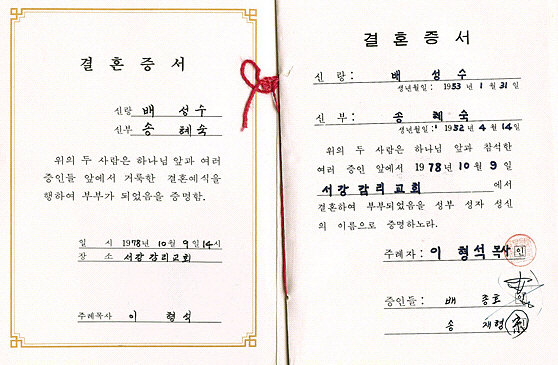 결 혼 증 서
신랑 배 성수
신부 송 혜숙
위의 두 사람은 하나님 앞과 여러
증인들 앞에서 거룩한 결혼예식을
행하여 부부가 되었음을 증명함.
일 시 1978년 10월 9일 14시
장 소 서강감리교회
주례목사 이 형석
결 혼 증 서
신 랑: 배 성 수
생년월일: 1953년 1월 31일
신 부: 송 혜 숙
생년월일: 1952년 4월 14일
위의 두 사람은 하나님 앞과 참석한
여러 증인 앞에서 1978년 10월 9일
서강감리교회 에서
결혼하여 부부되었음을 성부 성자 성신
의 이름으로 증명하노라.
주례자: 이 형석 목사 인
증인들: 배 종호 인
송 재형